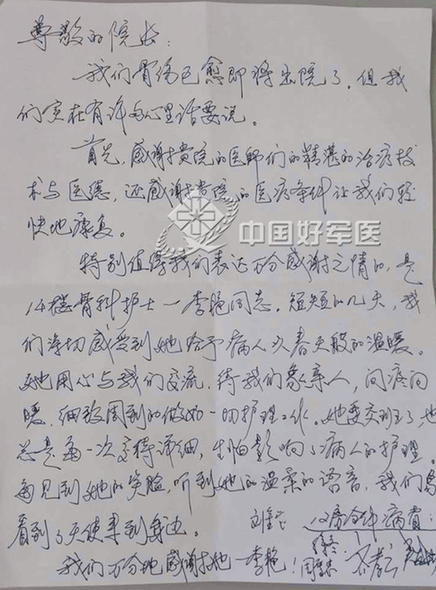 尊敬的院长：
我们骨伤已愈即将出院了，但我
们实在有许多心里话要说。
首先，感谢贵院的医师们的精湛的治疗技
术与医德，还感谢贵院的医疗条件让我们轻
快地康复。
中国好军医
特别值得我们表达万分感谢之情的，是
14楼骨科护士一李艳同志。短短的几天，我
们深切感受到她给予病人以春天般的温暖。
她用心与我们交流，待我们象亲人，问疼问
暖，细致周到的做好一切护理工作。她要交班了，也
总是每一次交待详细，生怕影响了病人的护理。
每见到她的笑脸，听到她的温柔的语音，我们象
看到了天使来到身边。
我们万分地感谢她一李艳！
病者：